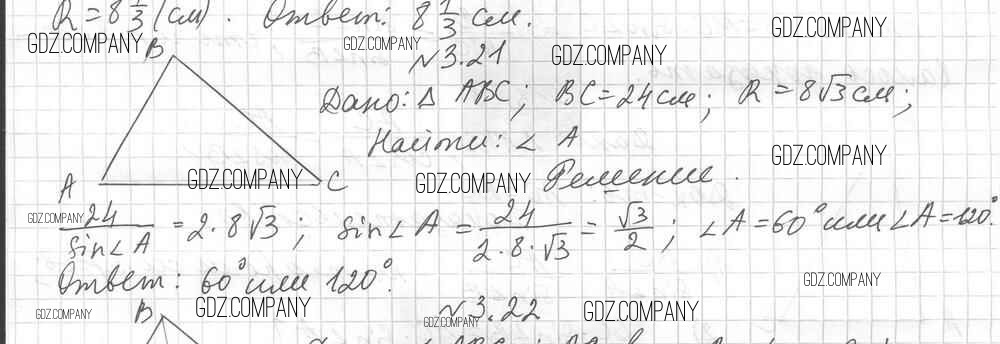 R = 8 1/3 (см). Ответ: 8 1/3 см.
GDZ.COMPANY GDZ.COMPANY GDZ.COMPANY
B N3.21 GDZ.COMPANY
Дано: Δ ABC; BC = 24 см; R = 8√3 см;
Найти: ∠ A
GDZ.COMPANY
A GDZ.COMPANY C GDZ.COMPANY Решение.
GDZ.COMPANY
24/sin∠A = 2·8√3; sin∠A = 24/(2·8·√3) = √3/2; ∠A = 60° или ∠A = 120°.
Ответ: 60° или 120°.
GDZ.COMPANY
GDZ.COMPANY B GDZ.COMPANY N3.22 GDZ.COMPANY
GDZ.COMPANY